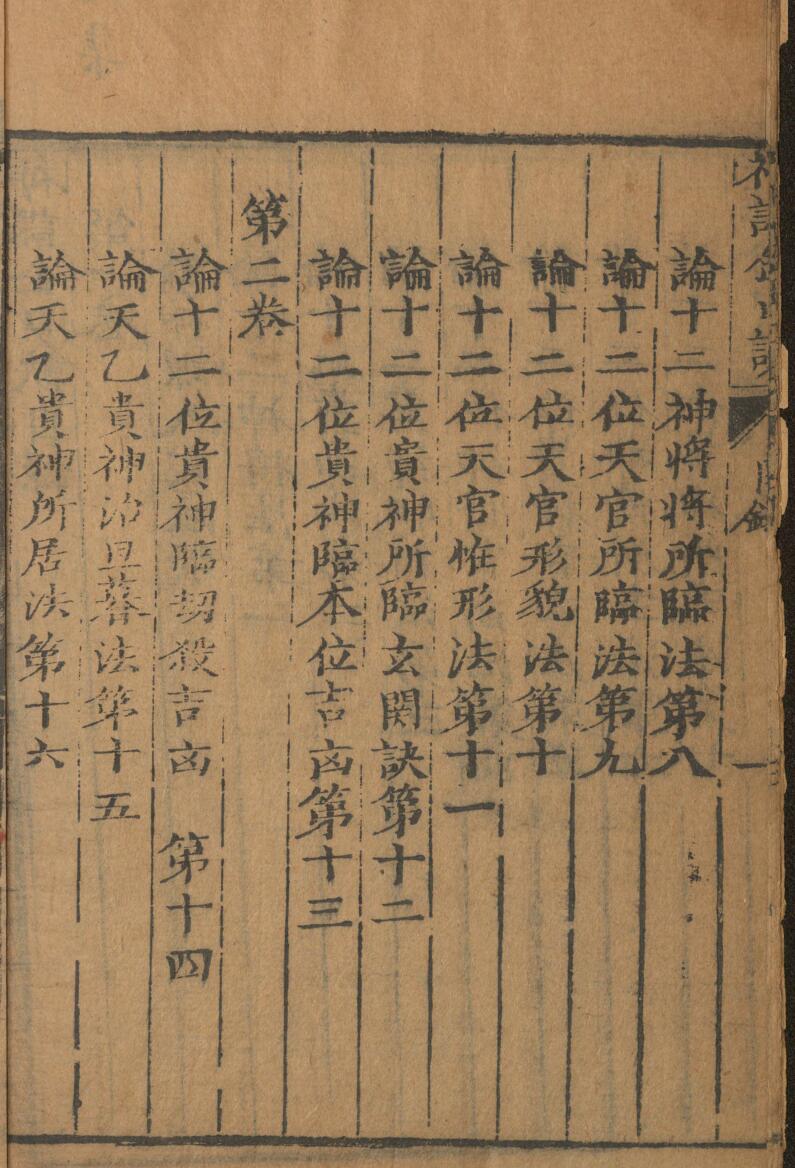 論十二神將將所臨法第八
論十二位天官所臨法第九
論十二位天官形貌法第十
論十二位天官惟形法第十一
論十二位貴神所臨玄関訣第十二
論十二位貴神臨本位吉凶第十三
第二卷
論十二位貴神臨刼殺吉凶 第十四
論天乙貴神治旦暮法第十五
論天乙貴神所居法第十六